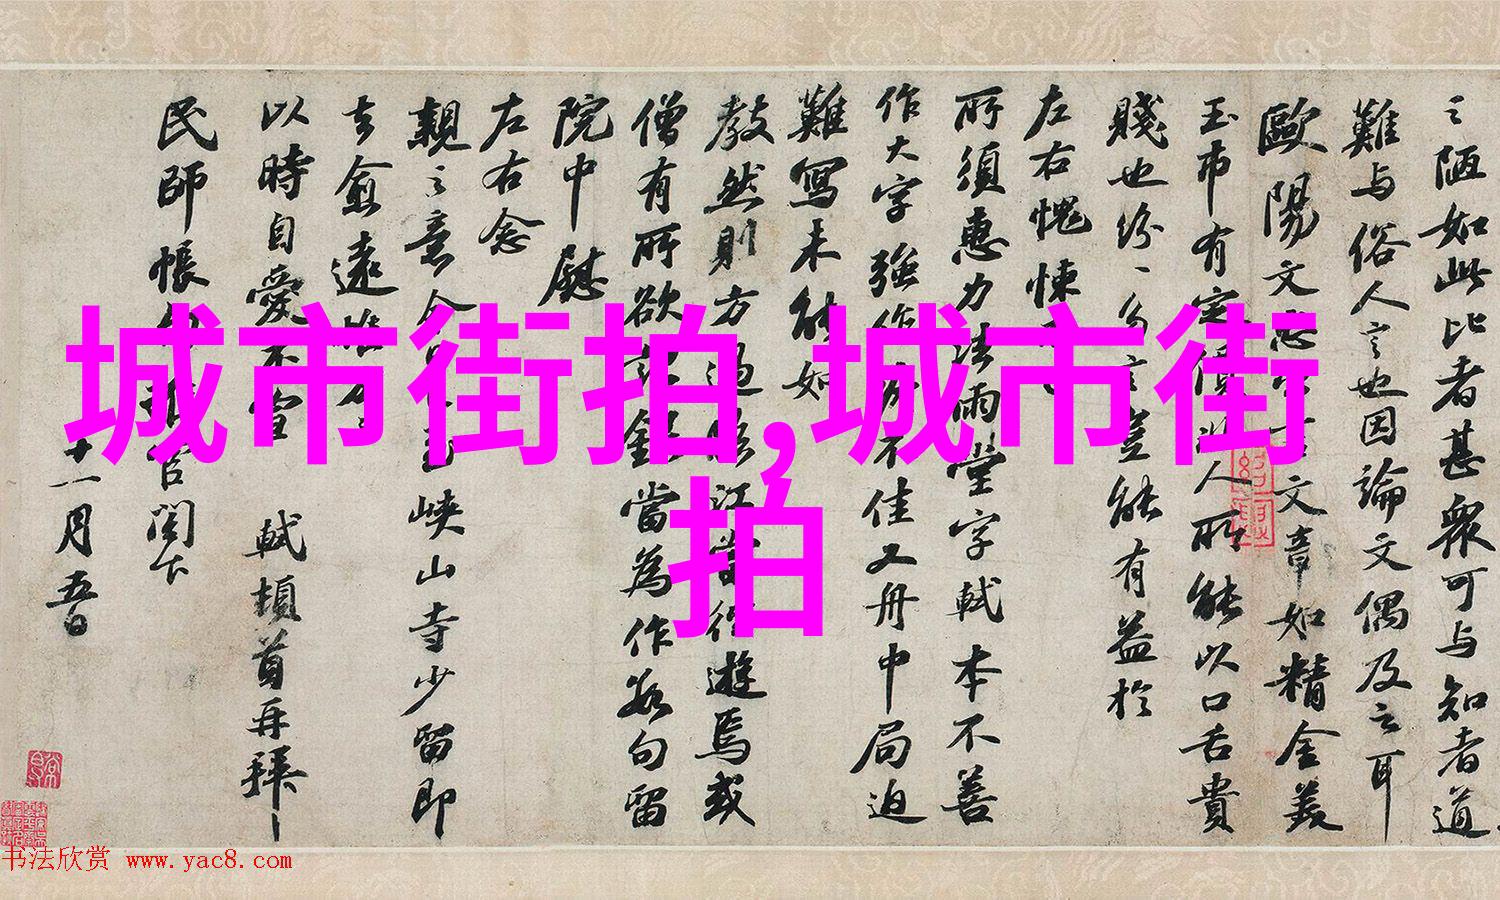 之陋如此比者甚眾可与知者道
難与俗人言也因論文偶及之耳
歐陽文忠公言文章如精金美
玉市有定價非人所能以口舌貴
賤也紛〻多言豈能有益於
左右愧悚
所須惠力法雨堂字軾本不善
作大字強作終不佳又舟中局迫
難寫未能如
教然則方過臨江當往遊焉或
僧有所欲記錄當為作數句留
院中慰
左右念
親之意今日已至峽山寺少留即
去愈遠惟
以時自愛不宣 軾頓首再拜
民師帳句推官閣下
十一月五日
城市街拍,城市街
拍
书法欣赏 www.yac8.com